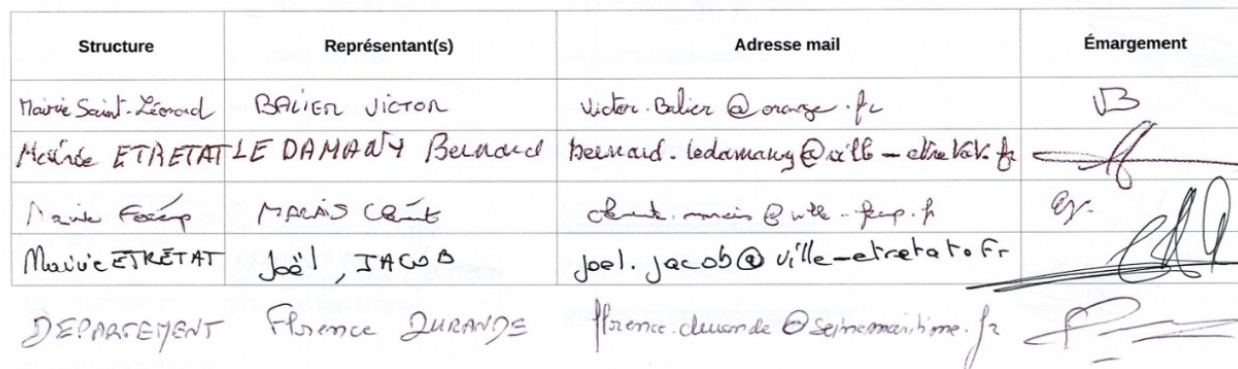 Structure Représentant(s) Adresse mail Émargement
Mairie Saint-Léonard BALIER VICTOR victor.Balier@orange.fr VB
Mairie ETRETAT LE DAMANY Bernard bernard.ledamany@ville-etretat.fr
Mairie Fécamp MARAIS
Mairie ETRETAT Joël, JACOB joel.jacob@ville-etretat.fr
DEPARTEMENT Florence DURANDE florence.durande@seinemaritime.fr